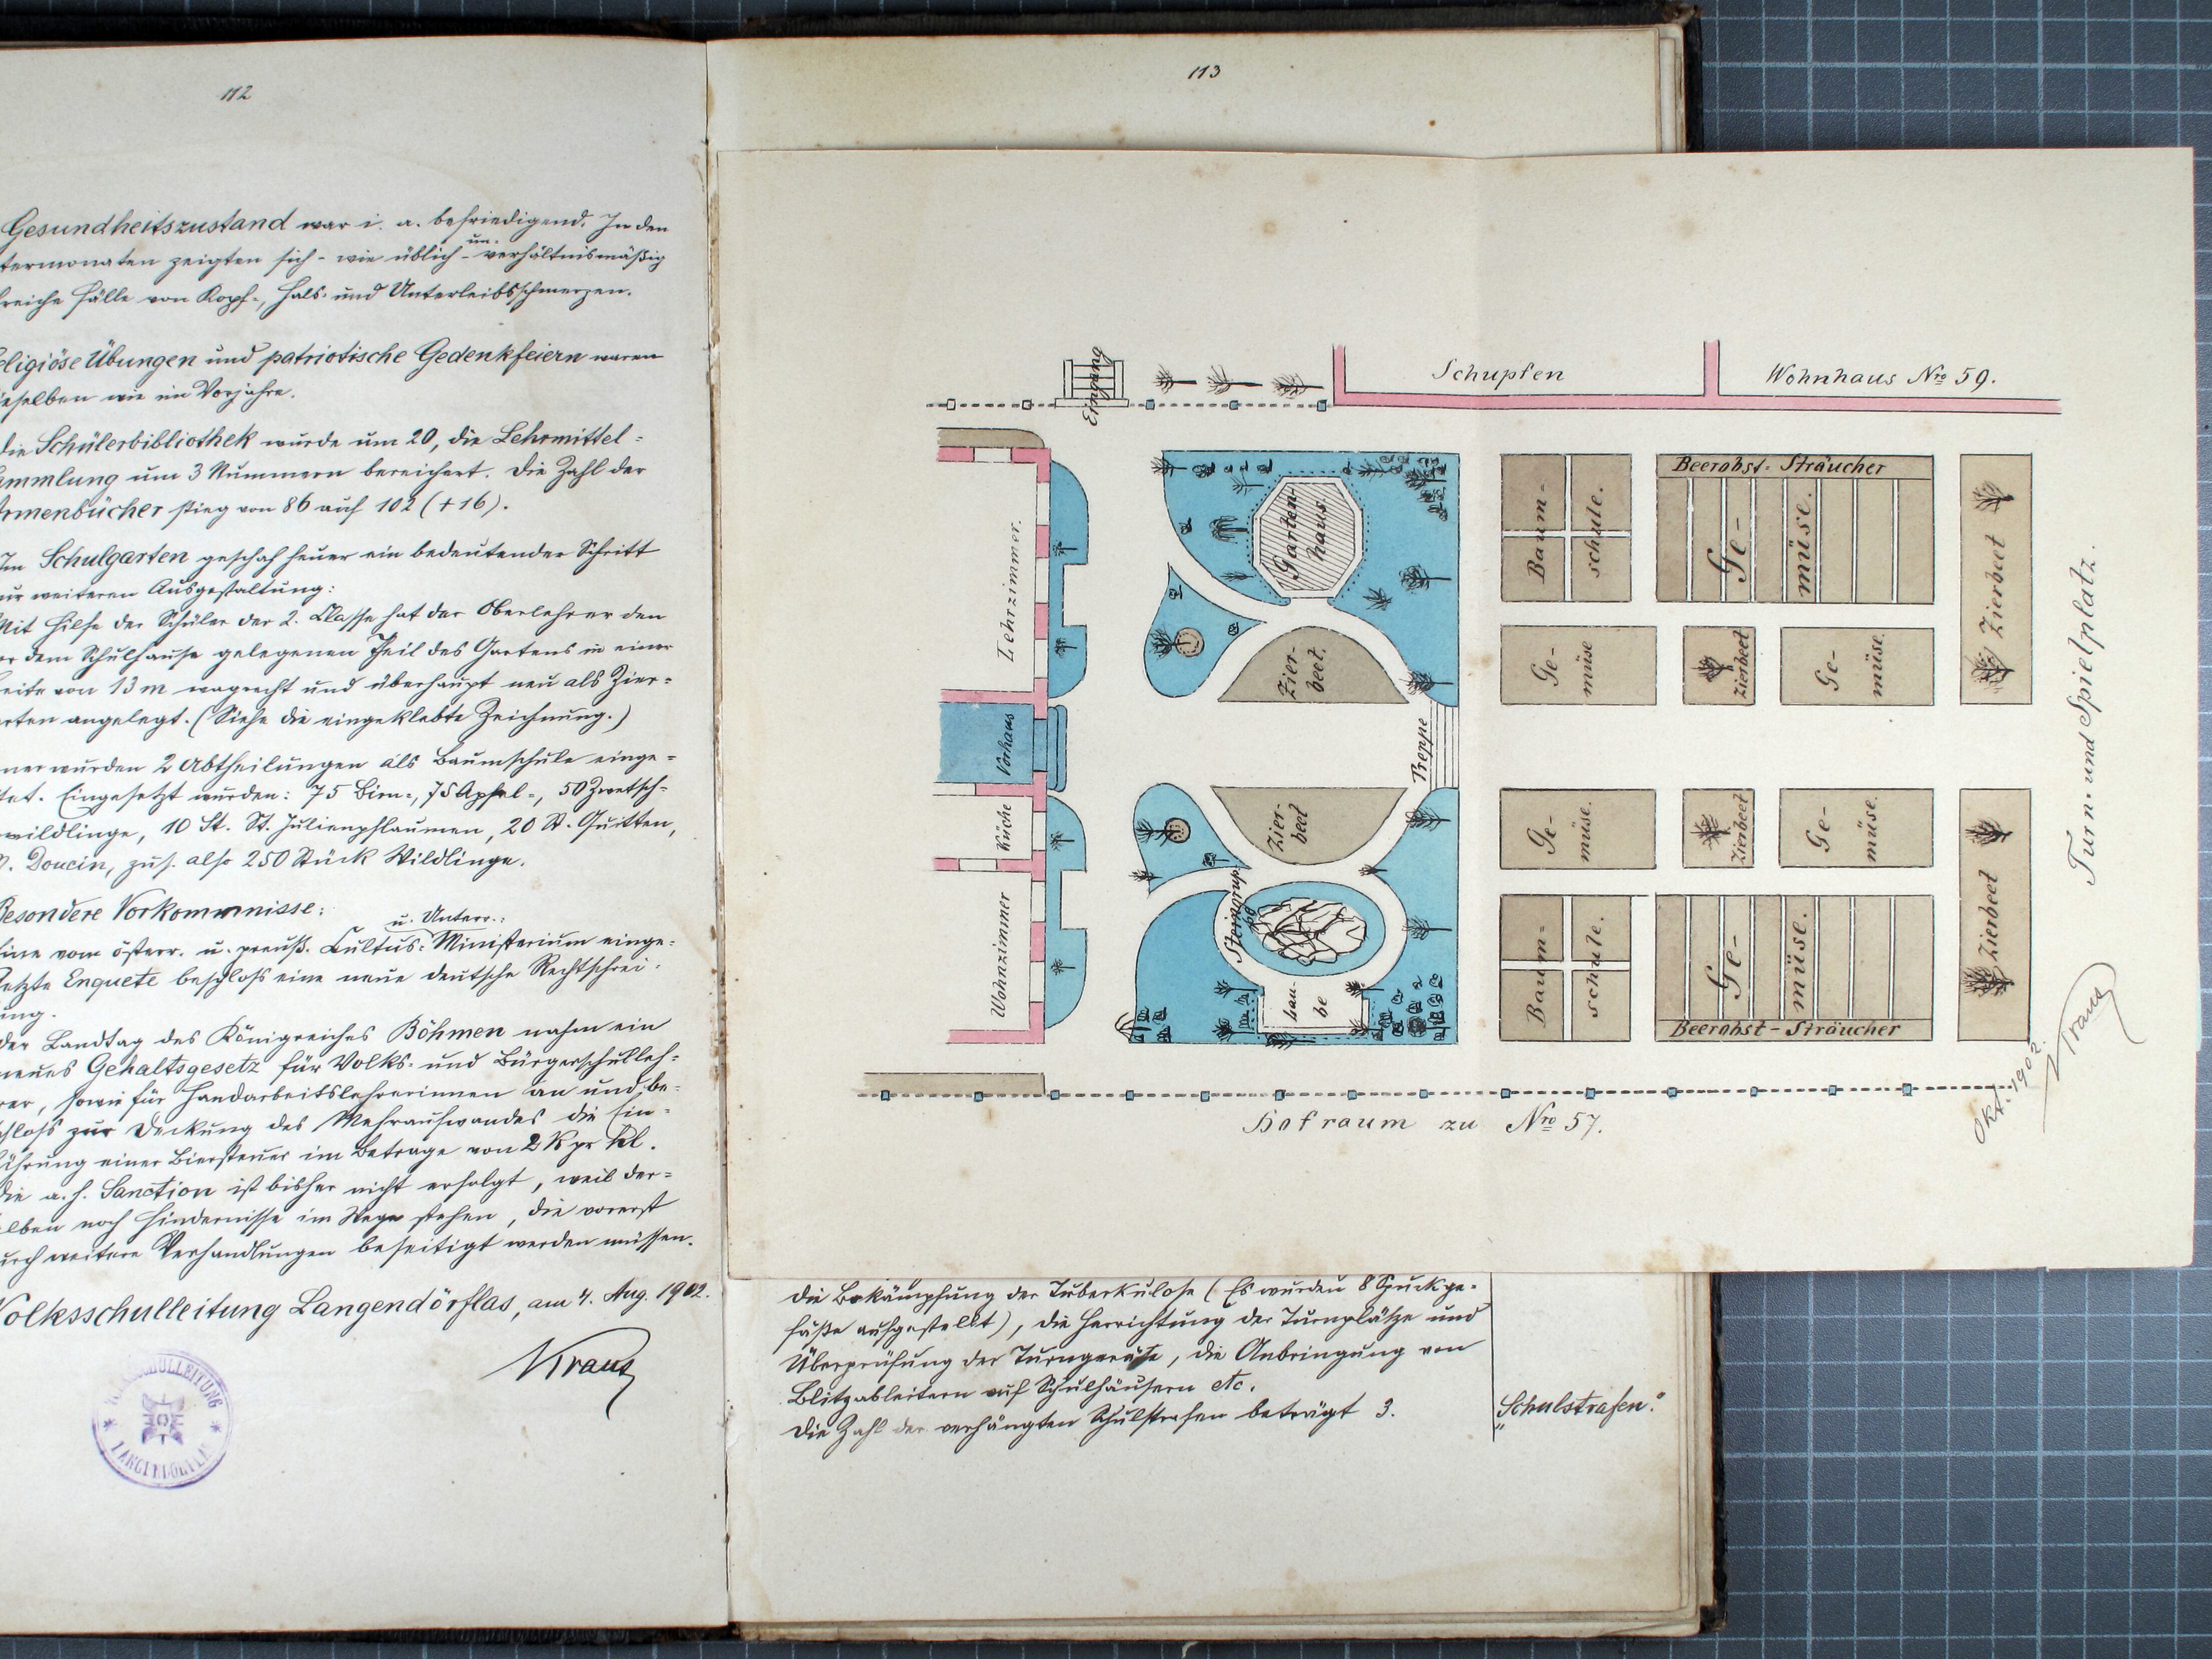 112
Gesundheitszustand war i. a. befriedigend. In den
termonaten zeigten sich - wie üblich - un-verhältnismäßig
reiche Fälle von Kopf-, Hals- und Unterleibsschmerzen.
eligiöse Übungen und patriotische Gedenkfeiern waren
ieselben wie im Vorjahre.
die Schülerbibliothek wurde um 20, die Lehrmittel-
ammlung um 3 Nummern bereichert. Die Zahl der
rmenbücher stieg von 86 auf 102 (+16).
Im Schulgarten geschah heuer ein bedeutender Schritt
ur weiteren Ausgestaltung:
Mit Hilfe der Schüler der 2. Classe hat der Oberlehrer den
or dem Schulhause gelegenen Theil des Gartens in einer
eite von 13 m wagrecht und überhaupt neu als Zier-
arten angelegt. (Siehe die eingeklebte Zeichnung.)
ner wurden 2 Abtheilungen als Baumschule einge-
tet. Eingesetzt wurden: 75 Birn-, 75 Apfel-, 50 Zwetsch-
wildlinge, 10 St. St. Julienpflaumen, 20 St. Quitten,
Doucin, zus. also 250 Stück Wildlinge.
Besondere Vorkommnisse:
Eine vom österr. u. preuß. Cultus- u. Unterr.-Ministerium einge-
setzte Enquete beschloß eine neue deutsche Rechtschrei-
ung.
Der Landtag des Königreiches Böhmen nahm ein
neues Gehaltsgesetz für Volks- und Bürgerschulleh-
rer, sowie für Handarbeitslehrerinnen an und be-
schloß zur Deckung des Mehraufwandes die Ein-
führung einer Biersteuer im Betrage von 2 K pr hl.
Die a. h. Sanction ist bisher nicht erfolgt, weil der-
elben noch Hindernisse im Wege stehen, die vorerst
urch weitere Verhandlungen beseitigt werden müssen.
Volksschulleitung Langendörflas, am 4. Aug. 1902.
NKraus
SCHULLEITUNG
113
Eingang
Schupfen
Wohnhaus Nro 59.
Lehrzimmer.
Vorhaus
Küche
Wohnzimmer
Garten-
haus
Zier-
beet.
Treppe
Zier-
beet
Steingruppe
Lau-
be
Baum-
schule.
Beerobst-Sträucher
Ge-
müse.
Zierbeet
Ge-
müse
Zierbeet
Ge-
müse
Ge-
müse.
Zierbeet
Ge-
müse.
Baum-
schule.
Ge-
müse.
Beerobst-Sträucher
Zierbeet
Turn- und Spielplatz.
Hofraum zu Nro 57.
Okt. 1902.
NKraus
die Bekämpfung der Tuberkulose (Es wurden 8 Spuckge-
fäße aufgestellt), die Herrichtung der Turnplätze und
Überprüfung der Turngeräte, die Anbringung von
Blitzableitern auf Schulhäusern etc.
Die Zahl der verhängten Schulstrafen beträgt 3.
„Schulstrafen“